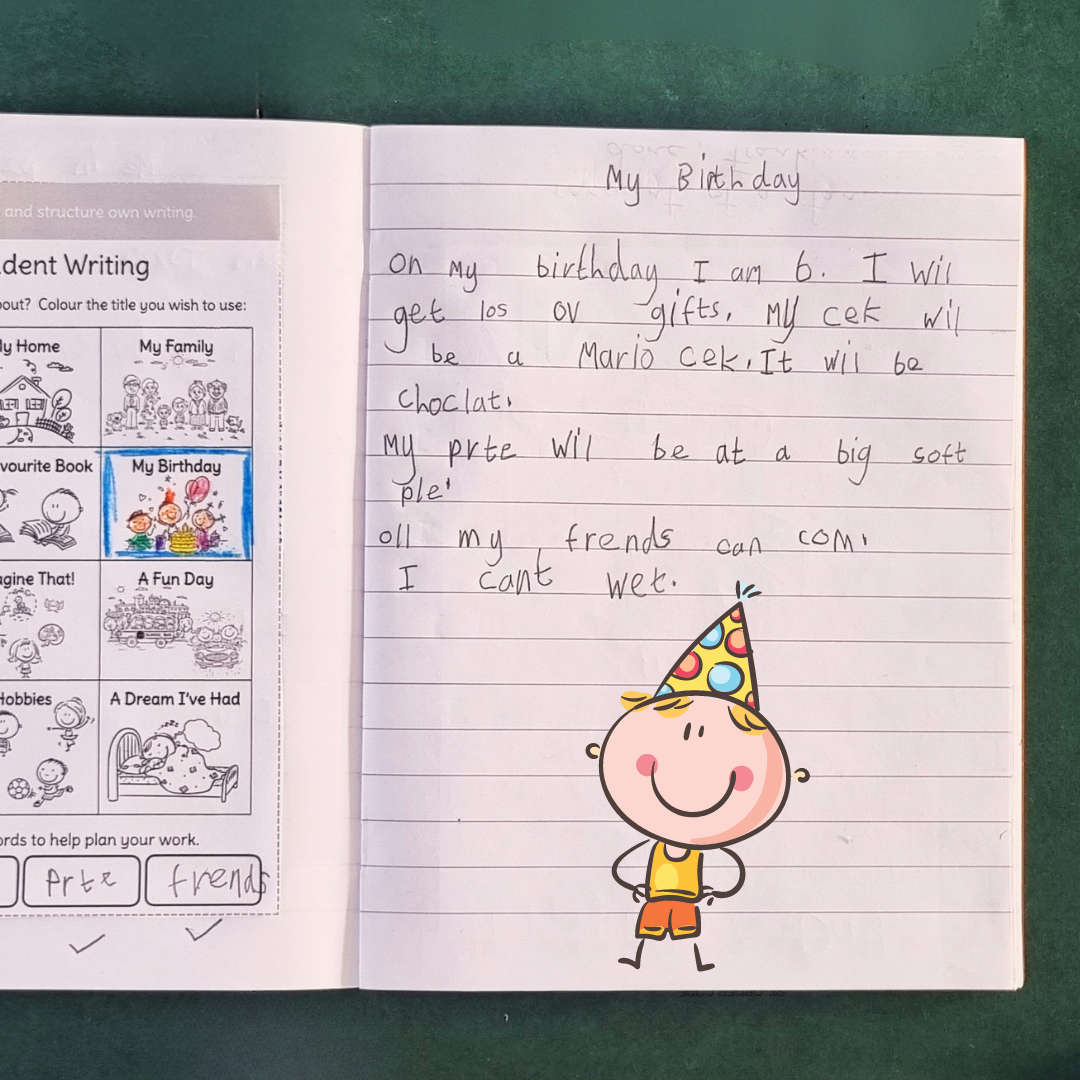 and structure own writing.
dent Writing
out? Colour the title you wish to use:
y Home
My Family
vourite Book
My Birthday
agine That!
A Fun Day
Hobbies
A Dream I've Had
ords to help plan your work.
prte
frends
My Birthday
On My birthday I am 6. I wil
get los ov gifts. My cek wil
be a Mario cek. It wil be
choclat.
My prte wil be at a big soft
ple.
oll my frends can com.
I cant wet.